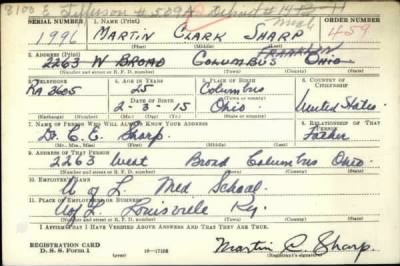 8100 E Jefferson # 509A
Mich
SERIAL NUMBER 1. NAME (Print) ORDER NUMBER
1996 MARTIN CLARK SHARP 459
(First) (Middle) (Last)
2. ADDRESS (Print) FRANKLIN
2263 W BROAD COLUMBUS OHIO
(Number and street or R. F. D. number) (Town) (County) (State)
3. TELEPHONE 4. AGE IN YEARS 5. PLACE OF BIRTH 6. COUNTRY OF CITIZENSHIP
RA 3605 25 Columbus
DATE OF BIRTH
2-3-15 Ohio United States
(Exchange) (Number) (Mo.) (Day) (Yr.) (State or country)
7. NAME OF PERSON WHO WILL ALWAYS KNOW YOUR ADDRESS 8. RELATIONSHIP OF THAT PERSON
Dr. C. E. Sharp Father
(Mr., Mrs., Miss) (First) (Middle) (Last)
9. ADDRESS OF THAT PERSON
2263 West Broad Columbus Ohio
(Number and street or R. F. D. number) (Town) (County) (State)
10. EMPLOYER'S NAME
U of L Med School
11. PLACE OF EMPLOYMENT OR BUSINESS
U of L Louisville Ky.
(Number and street or R. F. D. number) (Town) (County) (State)
I AFFIRM THAT I HAVE VERIFIED ABOVE ANSWERS AND THAT THEY ARE TRUE.
REGISTRATION CARD
D. S. S. Form 1 (over) Martin C. Sharp
(Registrant's signature)